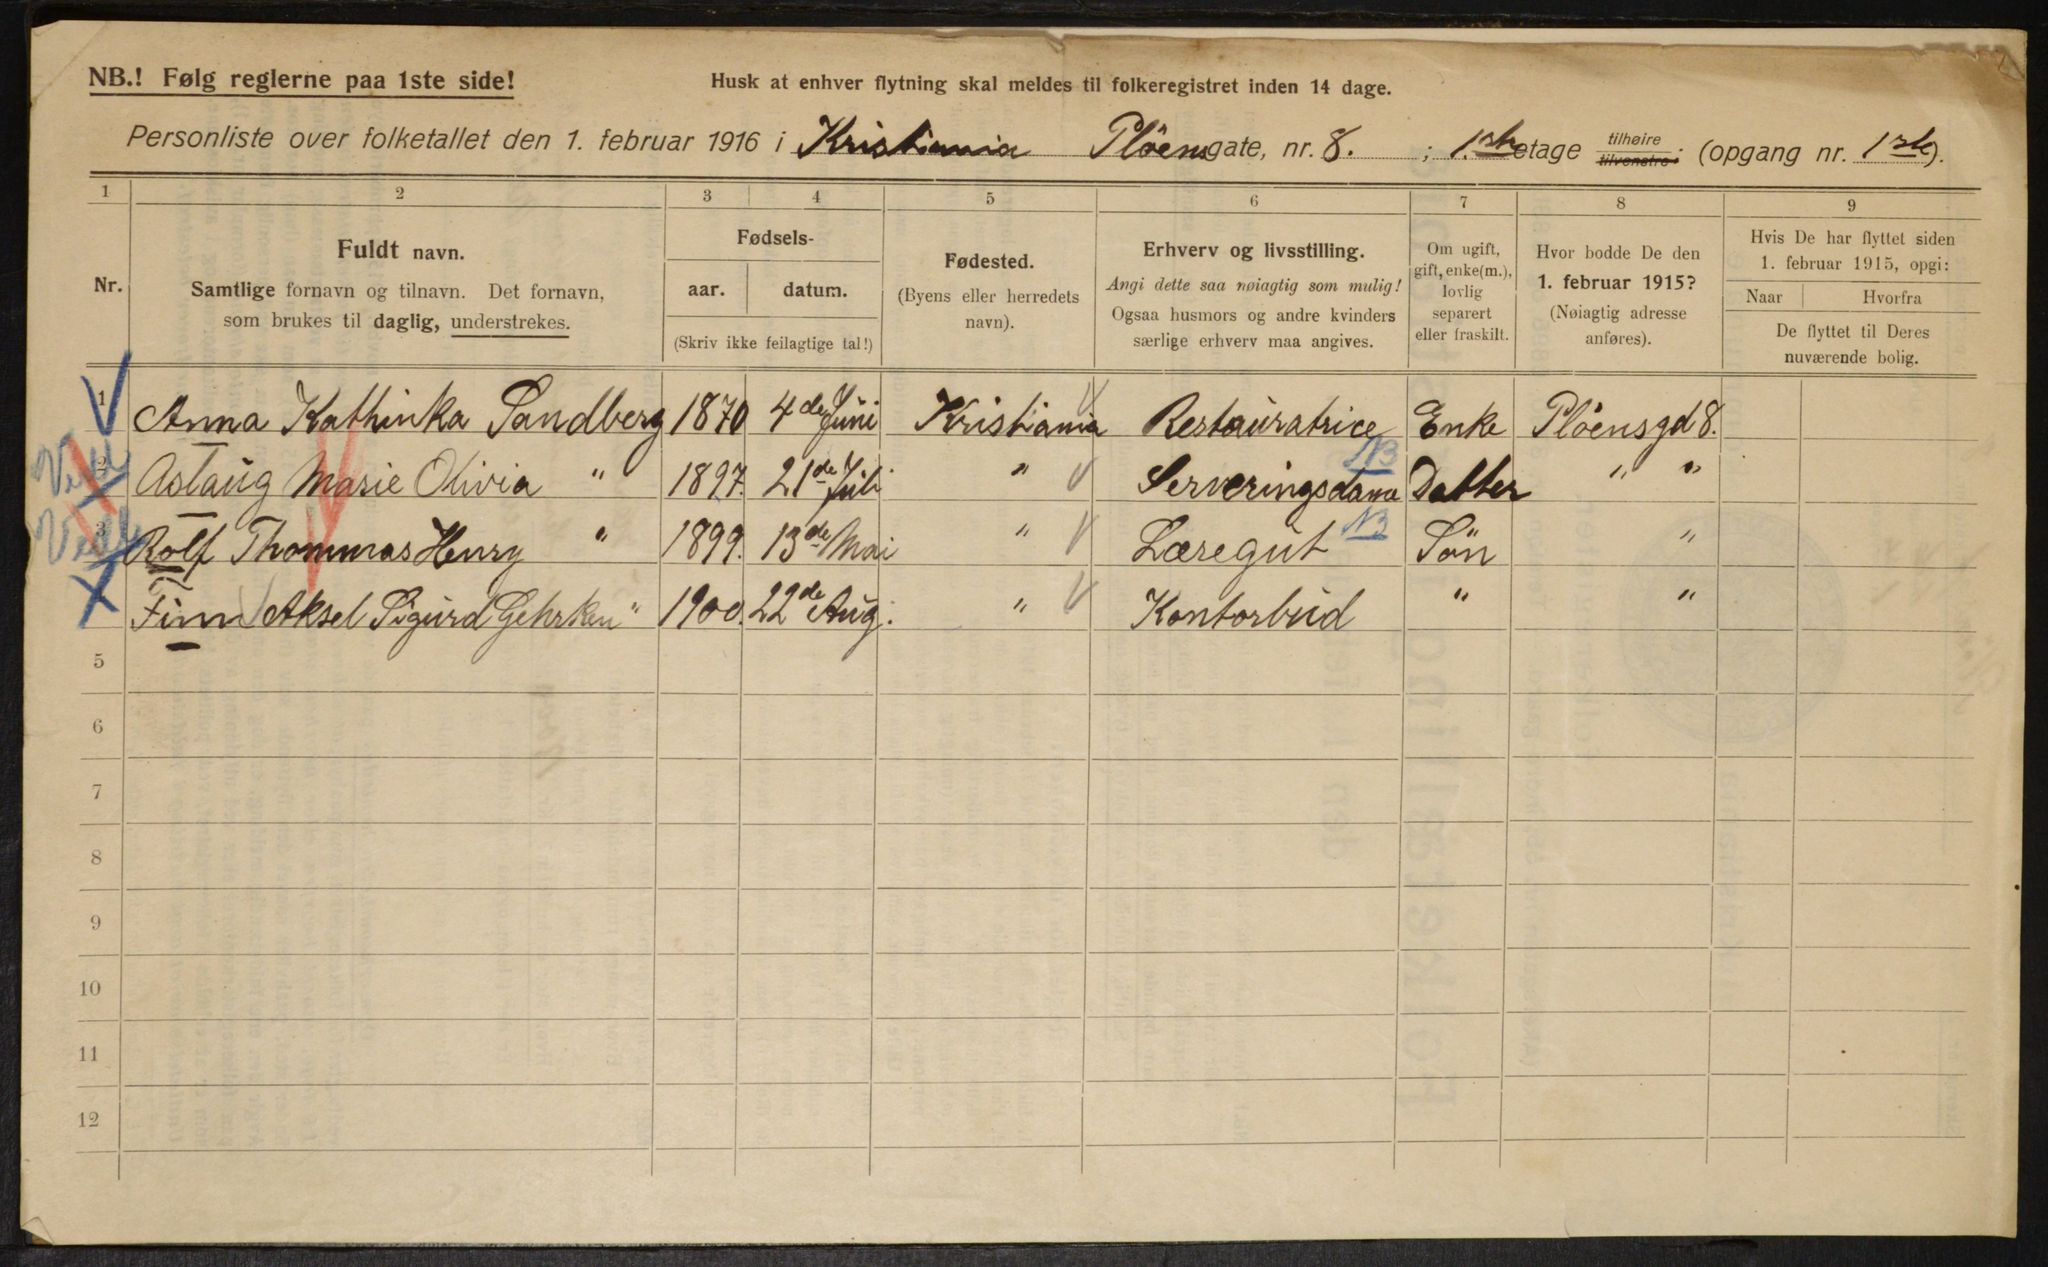 NB.! Følg reglerne paa 1ste side!
Husk at enhver flytning skal meldes til folkeregistret inden 14 dage.
Personliste over folketallet den 1. februar 1916 i Kristiania Plöens gate, nr. 8. ; 1.ste etage tilhøire tilvenstre. (opgang nr. 1ste).
1 2 3 4 5 6 7 8 9
Nr.
Fuldt navn.
Samtlige fornavn og tilnavn. Det fornavn,
som brukes til daglig, understrekes.
Fødsels-
aar. datum.
(Skriv ikke feilagtige tal!)
Fødested.
(Byens eller herredets
navn).
Erhverv og livsstilling.
Angi dette saa nøiagtig som mulig!
Ogsaa husmors og andre kvinders
særlige erhverv maa angives.
Om ugift,
gift, enke(m.),
lovlig
separert
eller fraskilt.
Hvor bodde De den
1. februar 1915?
(Nøiagtig adresse
anføres).
Hvis De har flyttet siden
1. februar 1915, opgi:
Naar Hvorfra
De flyttet til Deres
nuværende bolig.
1 Anna Kathinka Sandberg 1870 4de Juni Kristiania Restauratrice Enke Plöensgd 8.
2 Aslaug Marie Olivia " 1897. 21de Juli " Serveringsdama NB Datter " "
3 Rolf Thommas Henry " 1899. 13de Mai " Læregut NB Sön "
Finn Aksel Sigurd Gehrken " 1900. 22de Aug. " Kontorbud " "
5
6
7
8
9
10
11
12